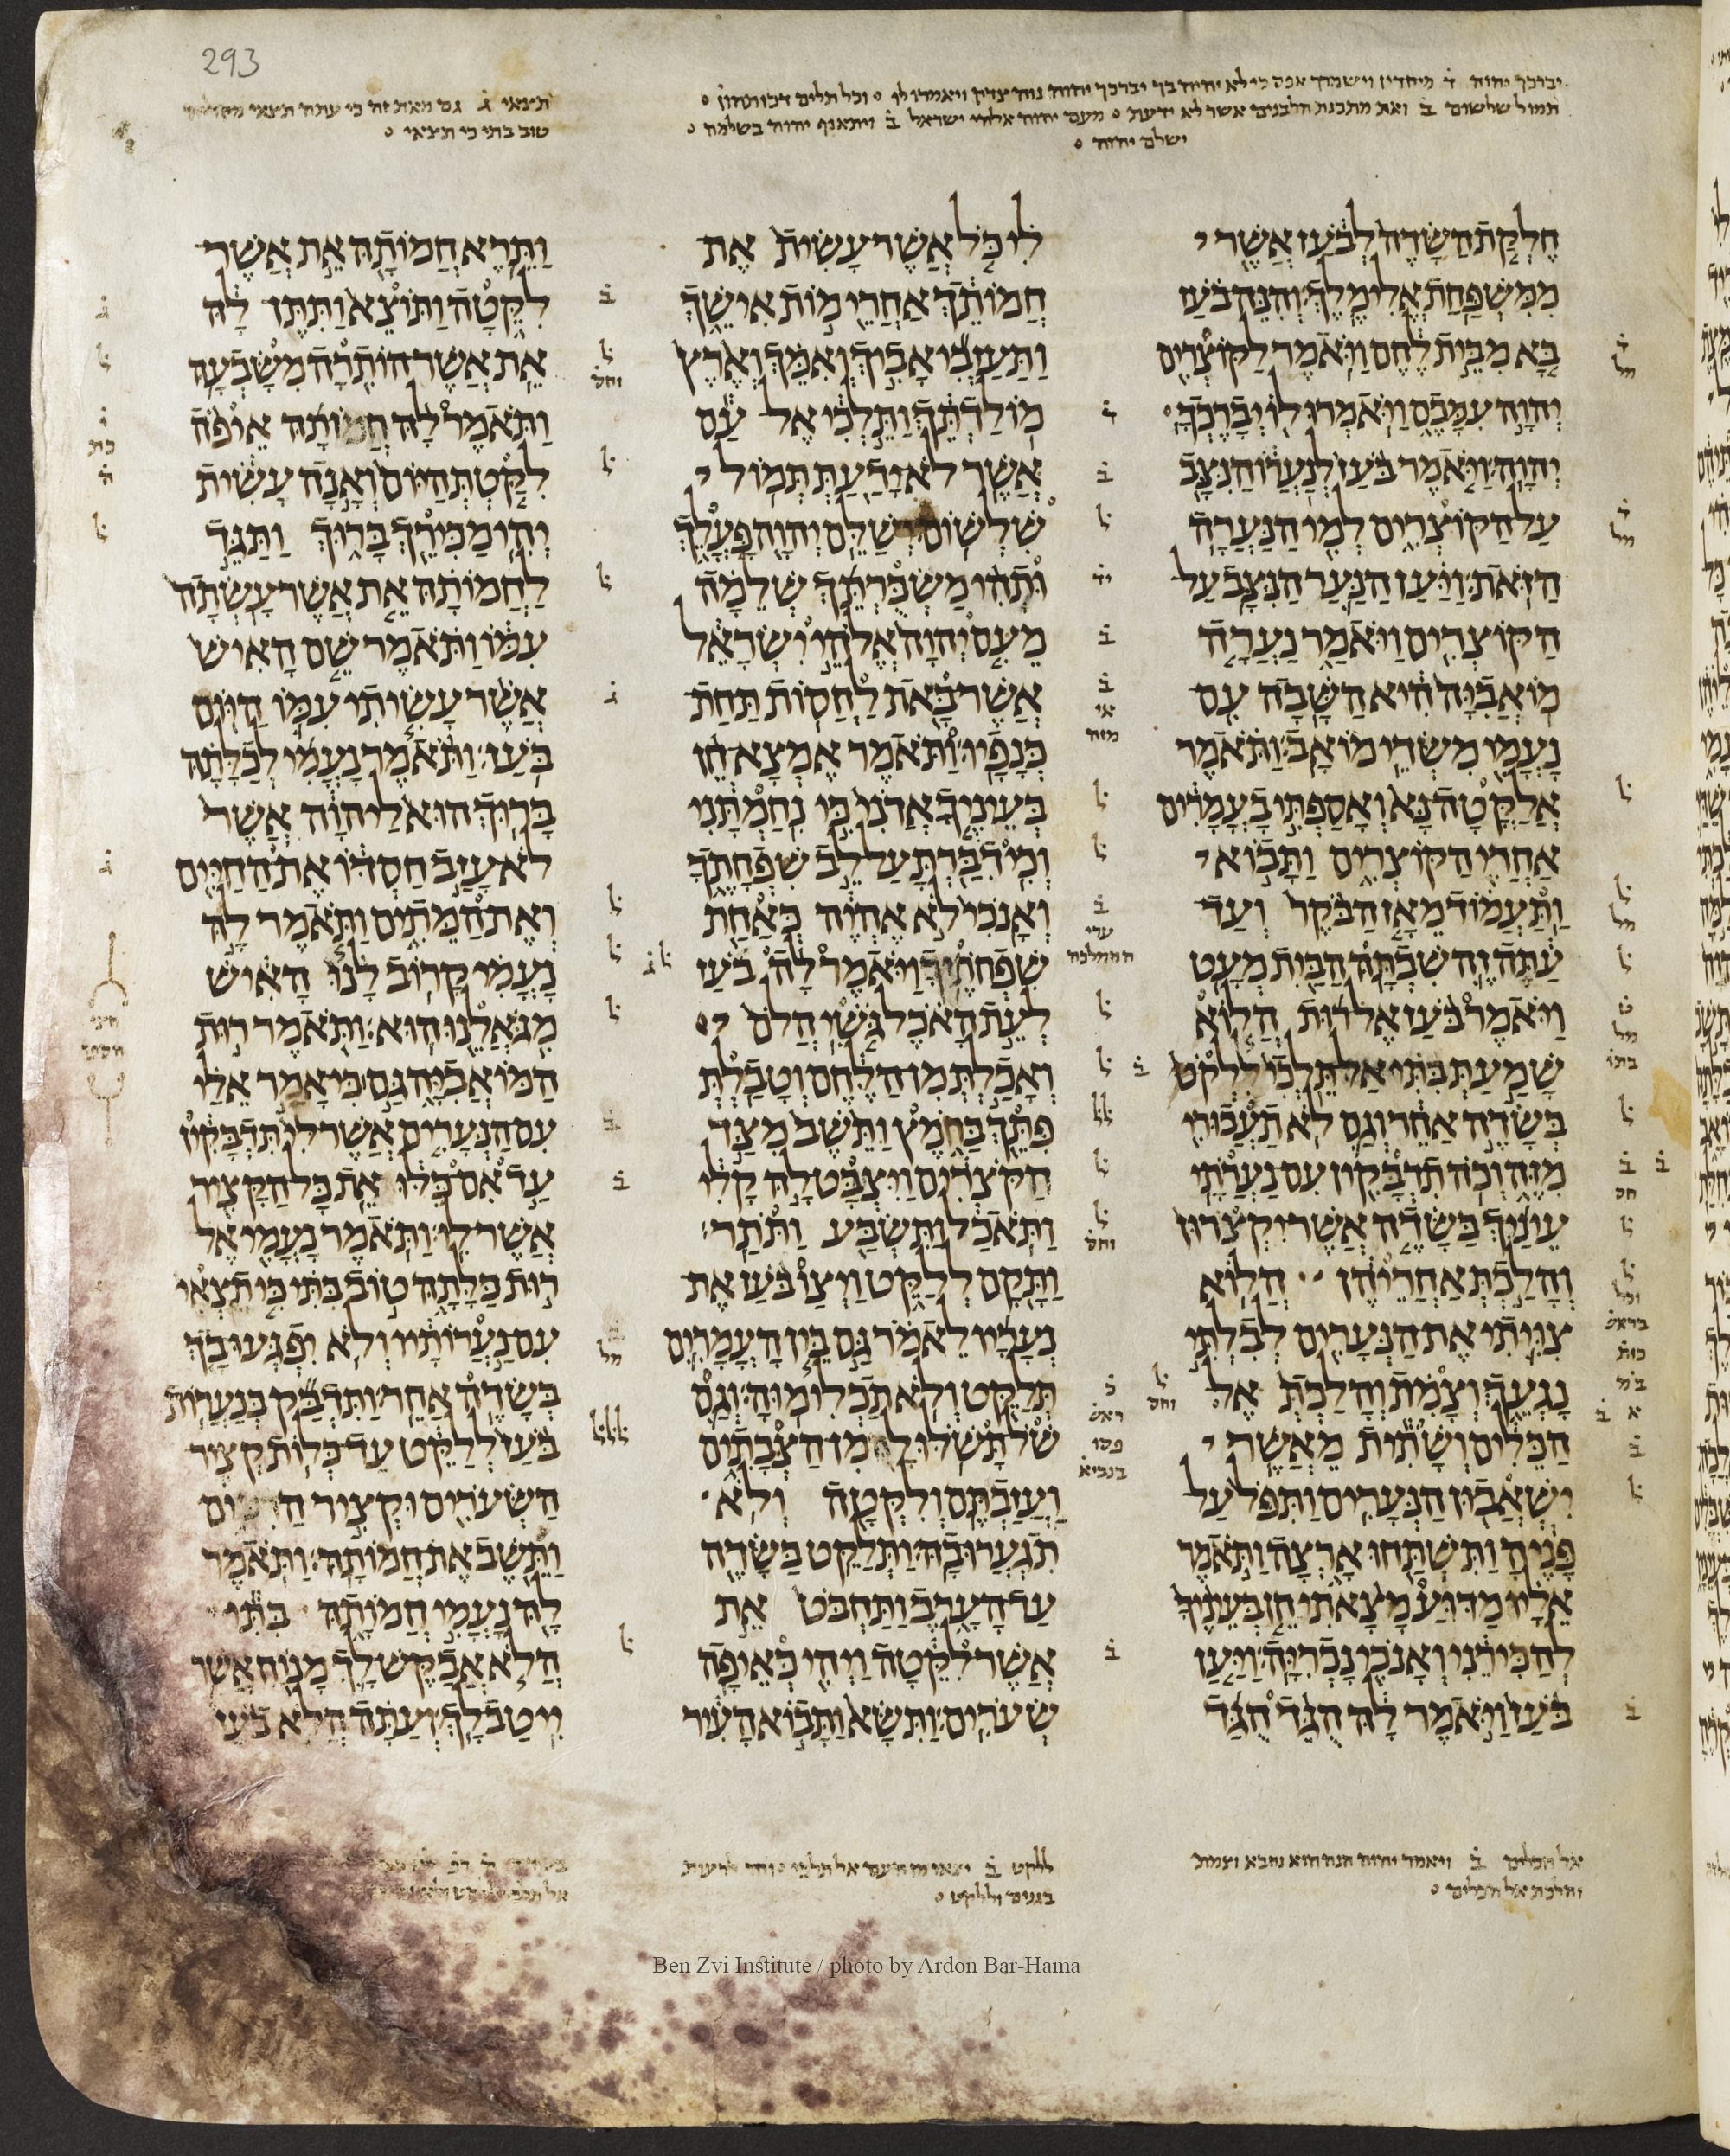 293
יברכך יהוה ד מיחדין וישמרך אפס כי לא יהיה בך יברכך יהוה נוה צדק ויאמרו לו וכל תלים דכותהון
תמול שלשום ב ואת מתכנת הלבנים אשר לא ידעת מעם יהוה אלהי ישראל ב ויתאנף יהוה בשלמה
ישלם יהוה
תצאי ג גם מאת זה כי עתה תצאי
טוב בתי כי תצאי
חלקת השדה לבעז אשר
ממשפחת אלימלך והנה בעז
בא מבית לחם ויאמר לקוצרים
יהוה עמכם ויאמרו לו יברכך
יהוה ויאמר בעז לנערו הנצב
על הקוצרים למי הנערה
הזאת ויען הנער הנצב על
הקוצרים ויאמר נערה
מואביה היא השבה עם
נעמי משדי מואב ותאמר
אלקטה נא ואספתי בעמרים
אחרי הקוצרים ותבוא
ותעמוד מאז הבקר ועד
עתה זה שבתה הבית מעט
ויאמר בעז אל רות הלוא
שמעת בתי אל תלכי ללקט
בשדה אחר וגם לא תעבורי
מזה וכה תדבקין עם נערתי
עיניך בשדה אשר יקצרון
והלכת אחריהן הלוא
צויתי את הנערים לבלתי
נגעך וצמת והלכת אל
הכלים ושתית מאשר
ישאבון הנערים ותפל על
פניה ותשתחו ארצה ותאמר
אליו מדוע מצאתי חן בעיניך
להכירני ואנכי נכריה ויען
בעז ויאמר לה הגד הגד
לי כל אשר עשית את
חמותך אחרי מות אישך
ותעזבי אביך ואמך וארץ
מולדתך ותלכי אל עם
אשר לא ידעת תמול
שלשום ישלם יהוה פעלך
ותהי משכרתך שלמה
מעם יהוה אלהי ישראל
אשר באת לחסות תחת
כנפיו ותאמר אמצא חן
בעיניך אדני כי נחמתני
וכי דברת על לב שפחתך
ואנכי לא אהיה כאחת
שפחתיך ויאמר לה בעז
לעת האכל גשי הלם
ואכלת מן הלחם וטבלת
פתך בחמץ ותשב מצד
הקצרים ויצבט לה קלי
ותאכל ותשבע ותתר
ותקם ללקט ויצו בעז את
נעריו לאמר גם בין העמרים
תלקט ולא תכלימוה וגם
של תשלו לה מן הצבתים
ועזבתם ולקטה ולא
תגערו בה ותלקט בשדה
עד הערב ותחבט את
אשר לקטה ויהי כאיפה
שערים ותשא ותבוא העיר
ותרא חמותה את אשר
לקטה ותוצא ותתן לה
את אשר הותרה משבעה
ותאמר לה חמותה איפה
לקטת היום ואנה עשית
יהי מכירך ברוך ותגד
לחמותה את אשר עשתה
עמו ותאמר שם האיש
אשר עשיתי עמו היום
בעז ותאמר נעמי לכלתה
ברוך הוא ליהוה אשר
לא עזב חסדו את החיים
ואת המתים ותאמר לה
נעמי קרוב לנו האיש
מגאלנו הוא ותאמר רות
המואביה גם כי אמר אלי
עם הנערים אשר לי תדבקין
עד אם כלו את כל הקציר
אשר לי ותאמר נעמי אל
רות כלתה טוב בתי כי תצאי
עם נערותיו ולא יפגעו בך
בשדה אחר ותדבק בנערות
בעז ללקט עד כלות קציר
השערים וקציר החטים
ותשב את חמותה ותאמר
לה נעמי חמותה בתי
הלא אבקש לך מנוח אשר
ייטב לך ועתה הלא בעז
אל הכלים ב ויאמר יהוה הנה הוא נחבא וצמת
והלכת אל הכלים
ללקט ב יצאו מן העם אל תלכי וחד לרעות
בגנים וללקט
Ben Zvi Institute / photo by Ardon Bar-Hama